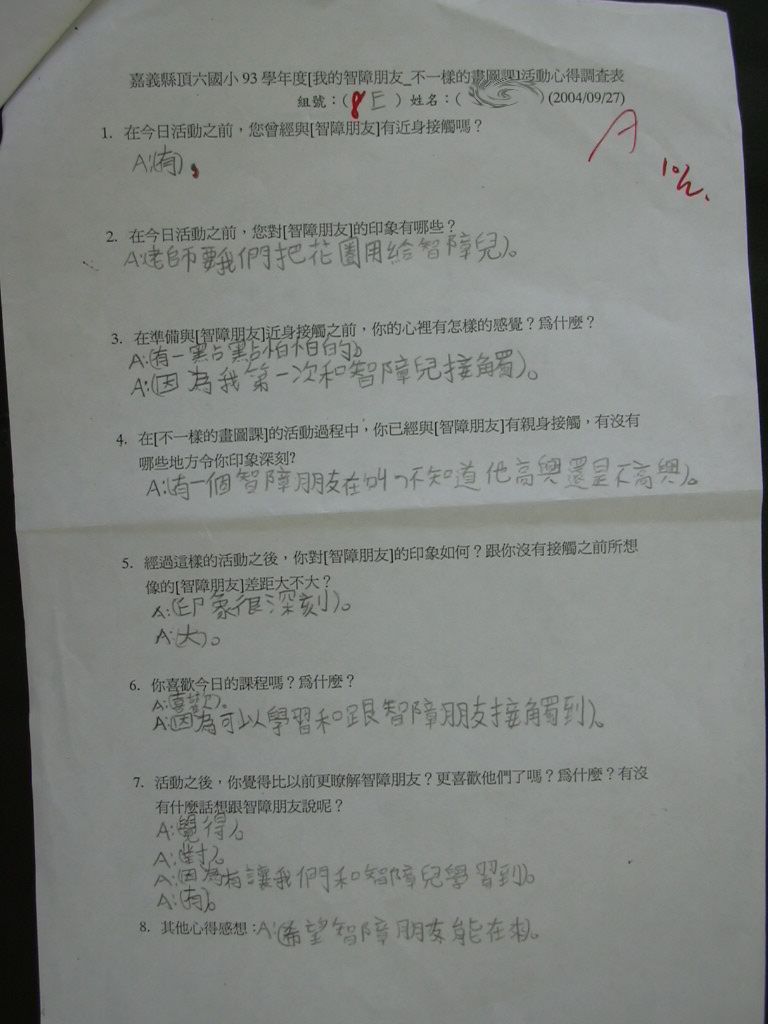 嘉義縣頂六國小 93 學年度[我的智障朋友_不一樣的畫圖課]活動心得調查表
組號：( 8 E ) 姓名：( ) (2004/09/27)
A
10/2.
1. 在今日活動之前，您曾經與[智障朋友]有近身接觸嗎？
A:(有)。
2. 在今日活動之前，您對[智障朋友]的印象有哪些？
A:(老師要我們把花圈用給智障兒)。
3. 在準備與[智障朋友]近身接觸之前，你的心裡有怎樣的感覺？爲什麼？
A:(有一點點怕怕的)。
A:(因為我第一次和智障兒接觸)。
4. 在[不一樣的畫圖課]的活動過程中，你已經與[智障朋友]有親身接觸，有沒有
哪些地方令你印象深刻?
A:(有一個智障朋友在叫，不知道他高興還是不高興)。
5. 經過這樣的活動之後，你對[智障朋友]的印象如何？跟你沒有接觸之前所想
像的[智障朋友]差距大不大？
A:(印象很深刻)。
A:(大)。
6. 你喜歡今日的課程嗎？爲什麼？
A:(喜歡)。
A:(因為可以學習和跟智障朋友接觸到)。
7. 活動之後，你覺得比以前更瞭解智障朋友？更喜歡他們了嗎？爲什麼？有沒
有什麼話想跟智障朋友說呢？
A:(覺得)。
A:(對)。
A:(因為有讓我們和智障兒學習到)。
A:(有)。
8. 其他心得感想：A:(希望智障朋友能在來)。